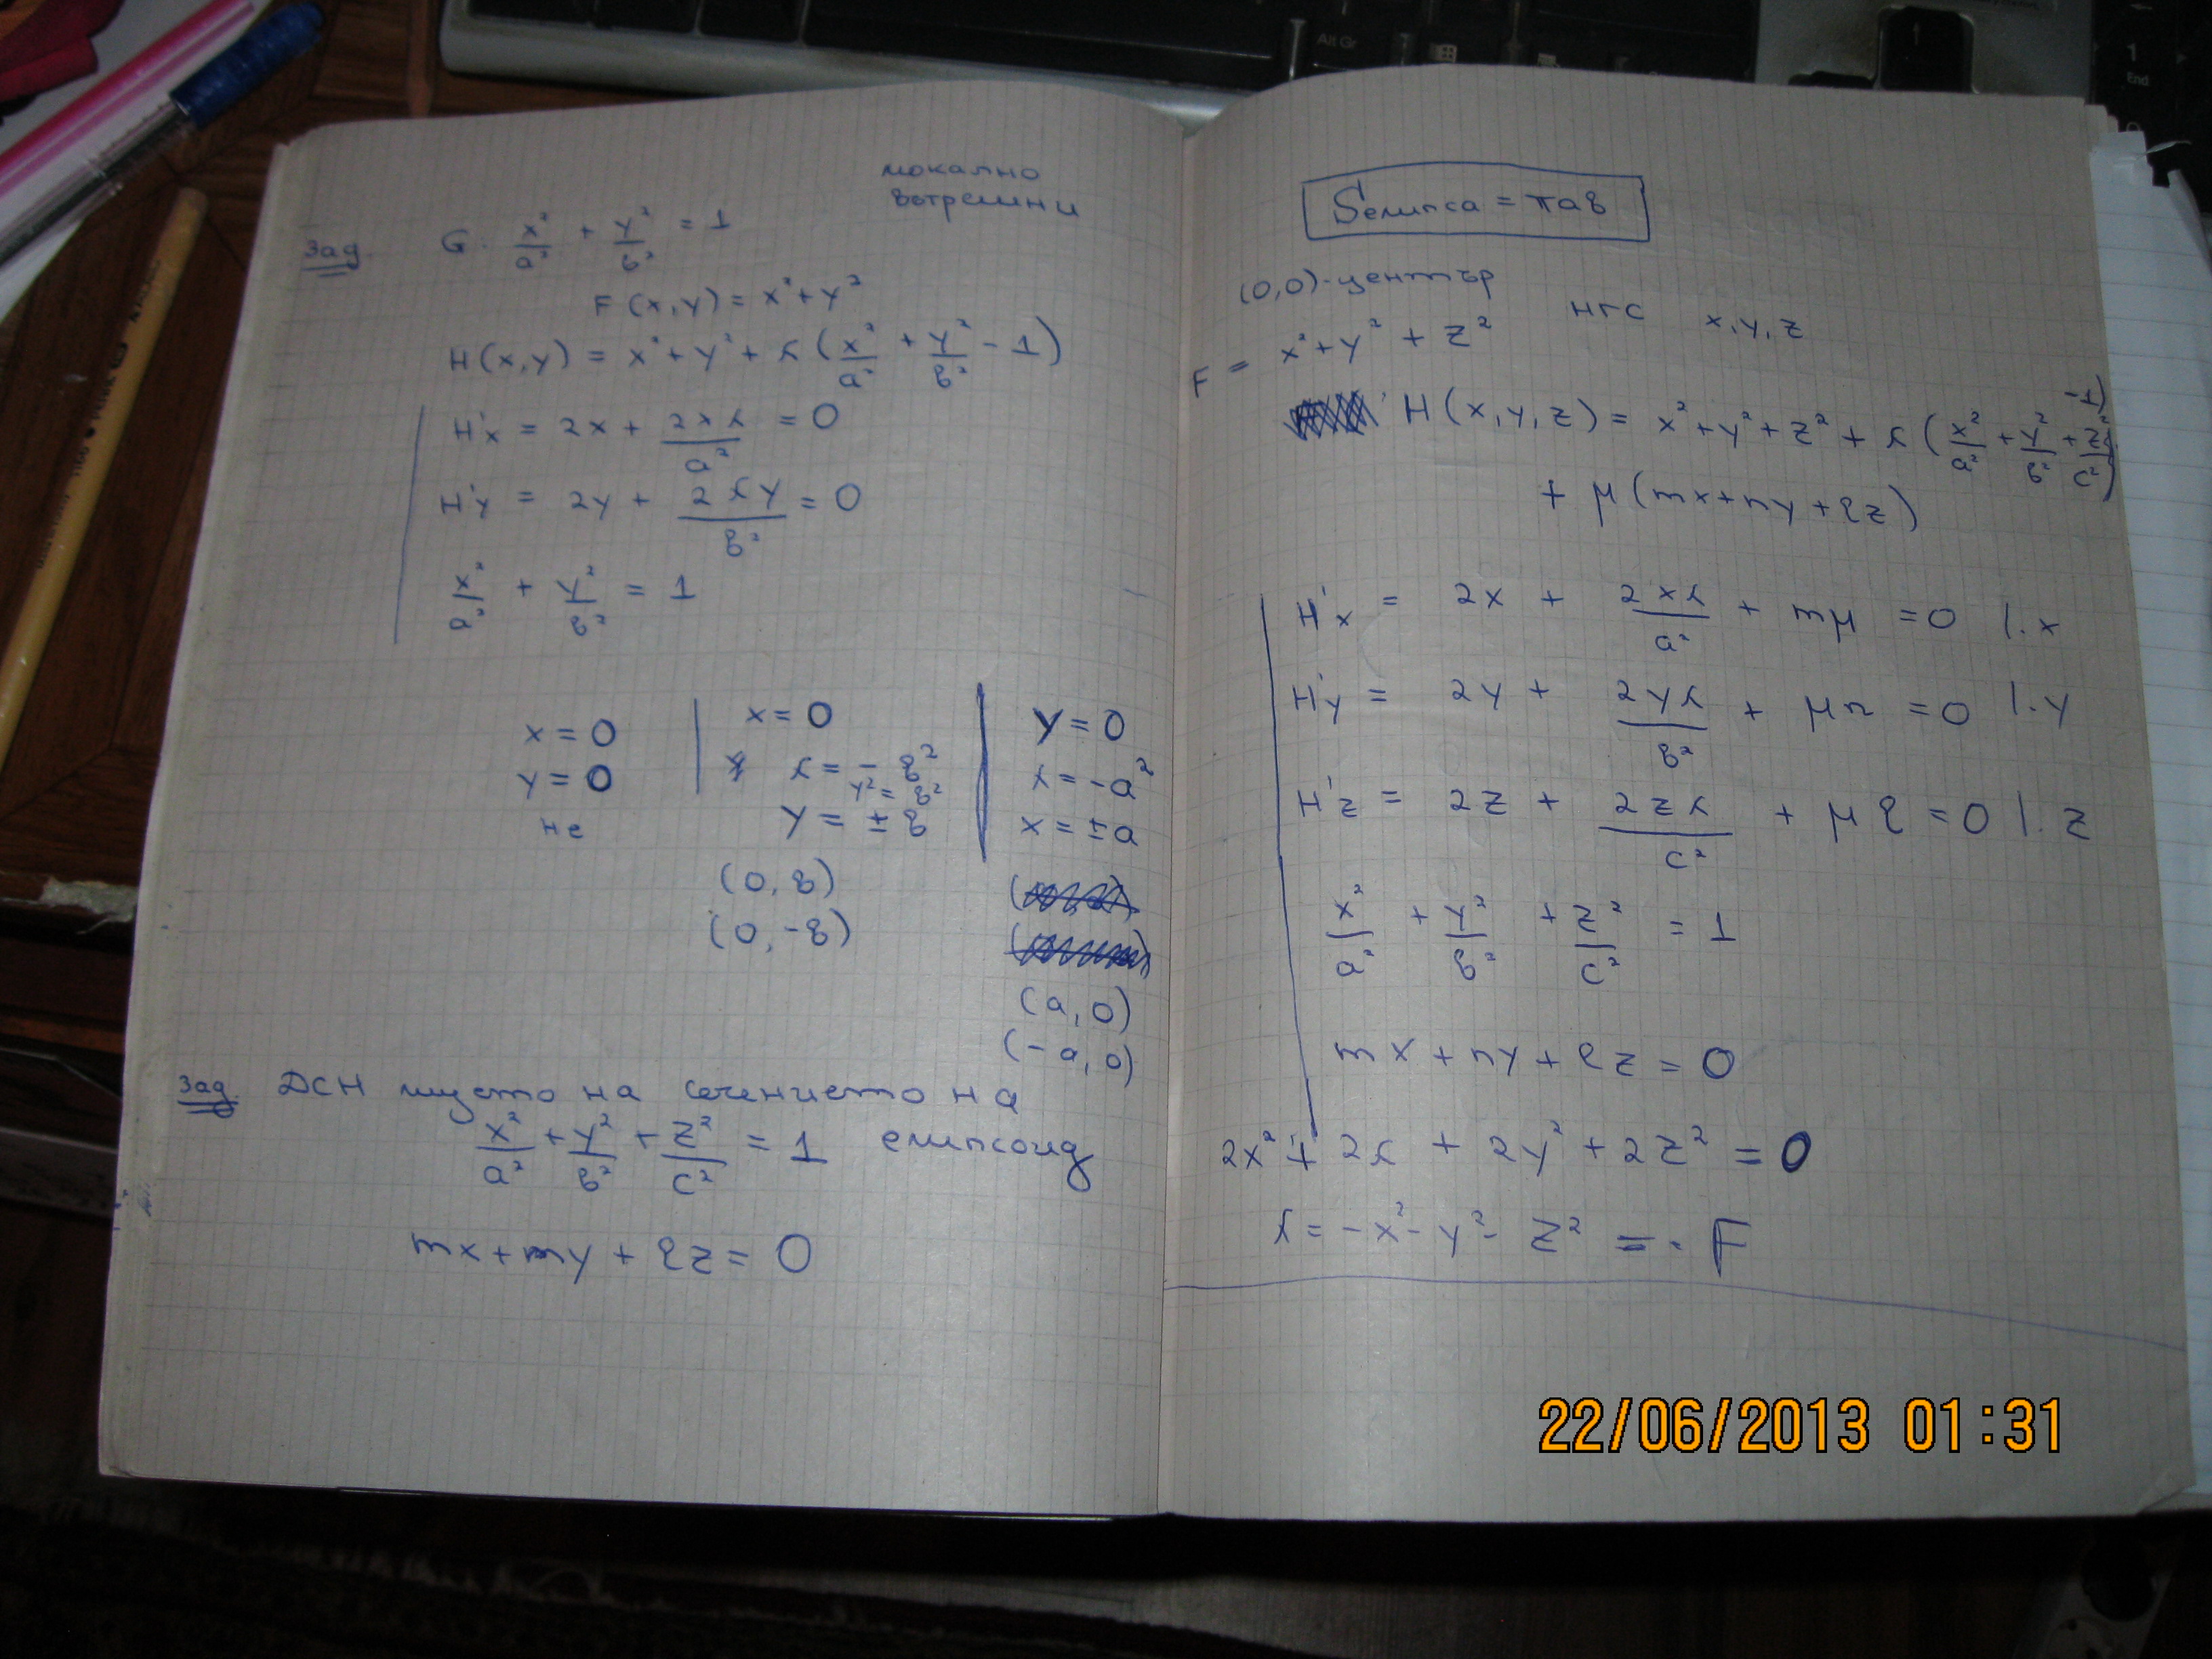 локално
вътрешни
Зад. G: x²/a² + y²/b² = 1
F(x,y) = x² + y²
H(x,y) = x² + y² + λ(x²/a² + y²/b² - 1)
H'x = 2x + 2xλ/a² = 0
H'y = 2y + 2λy/b² = 0
x²/a² + y²/b² = 1
x = 0
y = 0
не
x = 0
λ = - b²
y² = b²
y = ± b
(0, b)
(0, -b)
y = 0
λ = -a²
x = ±a
(a, 0)
(-a, 0)
Зад. ДСН лицето на сечението на
x²/a² + y²/b² + z²/c² = 1 елипсоид
mx + ny + qz = 0
Sелипса = πab
(0,0) - център
F = x² + y² + z² НГС x, y, z
H(x,y,z) = x² + y² + z² + λ(x²/a² + y²/b² + z²/c² - 1)
+ μ(mx + ny + qz)
H'x = 2x + 2xλ/a² + mμ = 0 |.x
H'y = 2y + 2yλ/b² + μn = 0 |.y
H'z = 2z + 2zλ/c² + μq = 0 |.z
x²/a² + y²/b² + z²/c² = 1
mx + ny + qz = 0
2x² + 2λ + 2y² + 2z² = 0
λ = -x² - y² - z² = - F
Alt Gr
1
1
End
22/06/2013 01:31